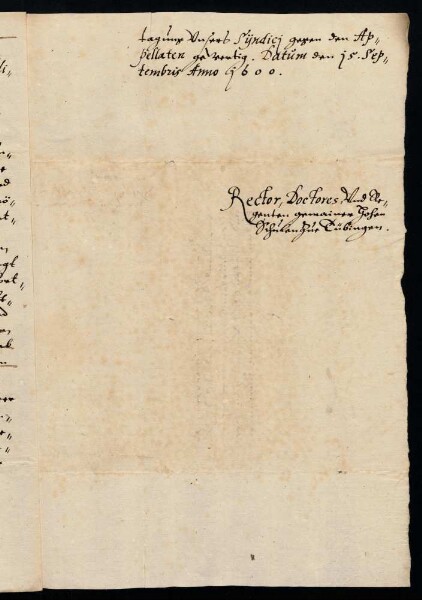 tagung Unsers Sÿndicj gegen den Ap„
pellaten gewertig. Datum den 15. Sep„
tembris Anno 1600.
Rector, Doctores Und Re„
genten gemainer Hohen
Schulen zue Tübingen.